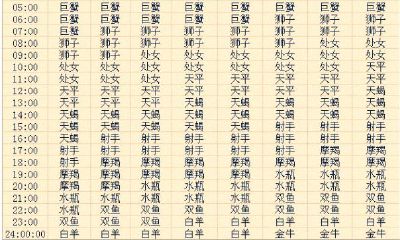 05:00 巨蟹 巨蟹 巨蟹 巨蟹 巨蟹 巨蟹 巨蟹
06:00 巨蟹 巨蟹 巨蟹 巨蟹 狮子 狮子 狮子
07:00 巨蟹 狮子 狮子 狮子 狮子 狮子 狮子
08:00 狮子 狮子 狮子 狮子 狮子 处女 处女
09:00 狮子 狮子 处女 处女 处女 处女 处女
10:00 处女 处女 处女 处女 处女 处女 天平
11:00 处女 处女 处女 天平 天平 天平 天平
12:00 天平 天平 天平 天平 天平 天平 天蝎
13:00 天平 天平 天平 天蝎 天蝎 天蝎 天蝎
14:00 天蝎 天蝎 天蝎 天蝎 天蝎 天蝎 天蝎
15:00 天蝎 天蝎 天蝎 天蝎 射手 射手 射手
16:00 天蝎 射手 射手 射手 射手 射手 射手
17:00 射手 射手 射手 射手 射手 摩羯 摩羯
18:00 射手 摩羯 摩羯 摩羯 摩羯 摩羯 摩羯
19:00 摩羯 摩羯 摩羯 摩羯 水瓶 水瓶 水瓶
20:00 摩羯 摩羯 水瓶 水瓶 水瓶 水瓶 水瓶
21:00 水瓶 水瓶 水瓶 水瓶 双鱼 双鱼 双鱼
22:00 水瓶 双鱼 双鱼 双鱼 双鱼 白羊 白羊
23:00 双鱼 双鱼 白羊 白羊 白羊 白羊 白羊
24:00:00 白羊 白羊 白羊 白羊 金牛 金牛 金牛